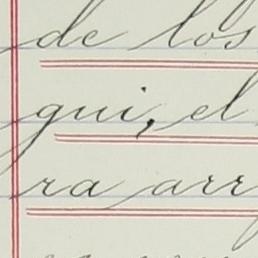 de los
gui, el
ra arr